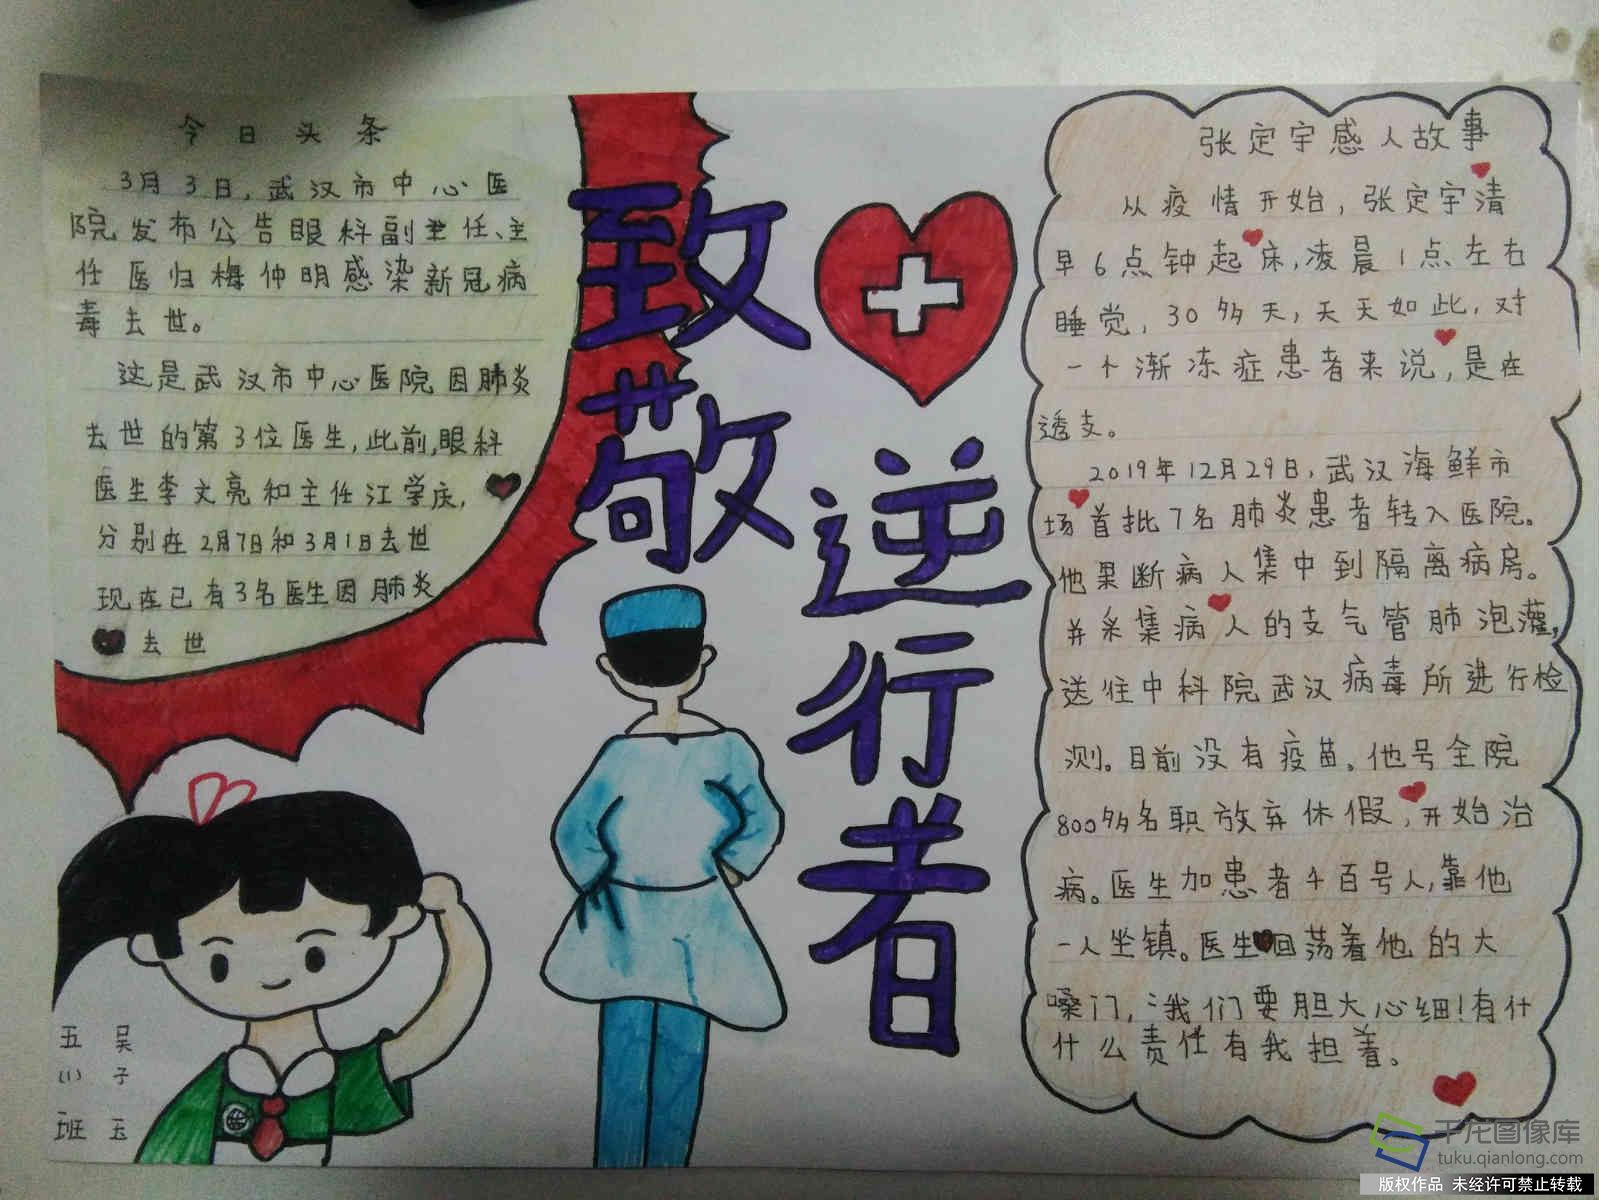 今日头条
3月3日，武汉市中心医
院发布公告眼科副主任、主
任医归梅仲明感染新冠病
毒去世。
这是武汉市中心医院因肺炎
去世的第3位医生，此前，眼科
医生李文亮和主任江学庆，
分别在2月7日和3月1日去世
现在已有3名医生因肺炎
去世
致敬
逆行者
张定宇感人故事
从疫情开始，张定宇清
早6点钟起床，凌晨1点左右
睡觉，30多天，天天如此，对
一个渐冻症患者来说，是在
透支。
2019年12月29日，武汉海鲜市
场首批7名肺炎患者转入医院。
他果断病人集中到隔离病房。
并采集病人的支气管肺泡灌，
送往中科院武汉病毒所进行检
测。目前没有疫苗。他号全院
800多名职放弃休假，开始治
病。医生加患者千百号人，靠他
一人坐镇。医生回荡着他的大
嗓门，：我们要胆大心细！有什
什么责任有我担着。
五(1)班
吴子玉
千龙图像库
tuku.qianlong.com
版权作品 未经许可禁止转载